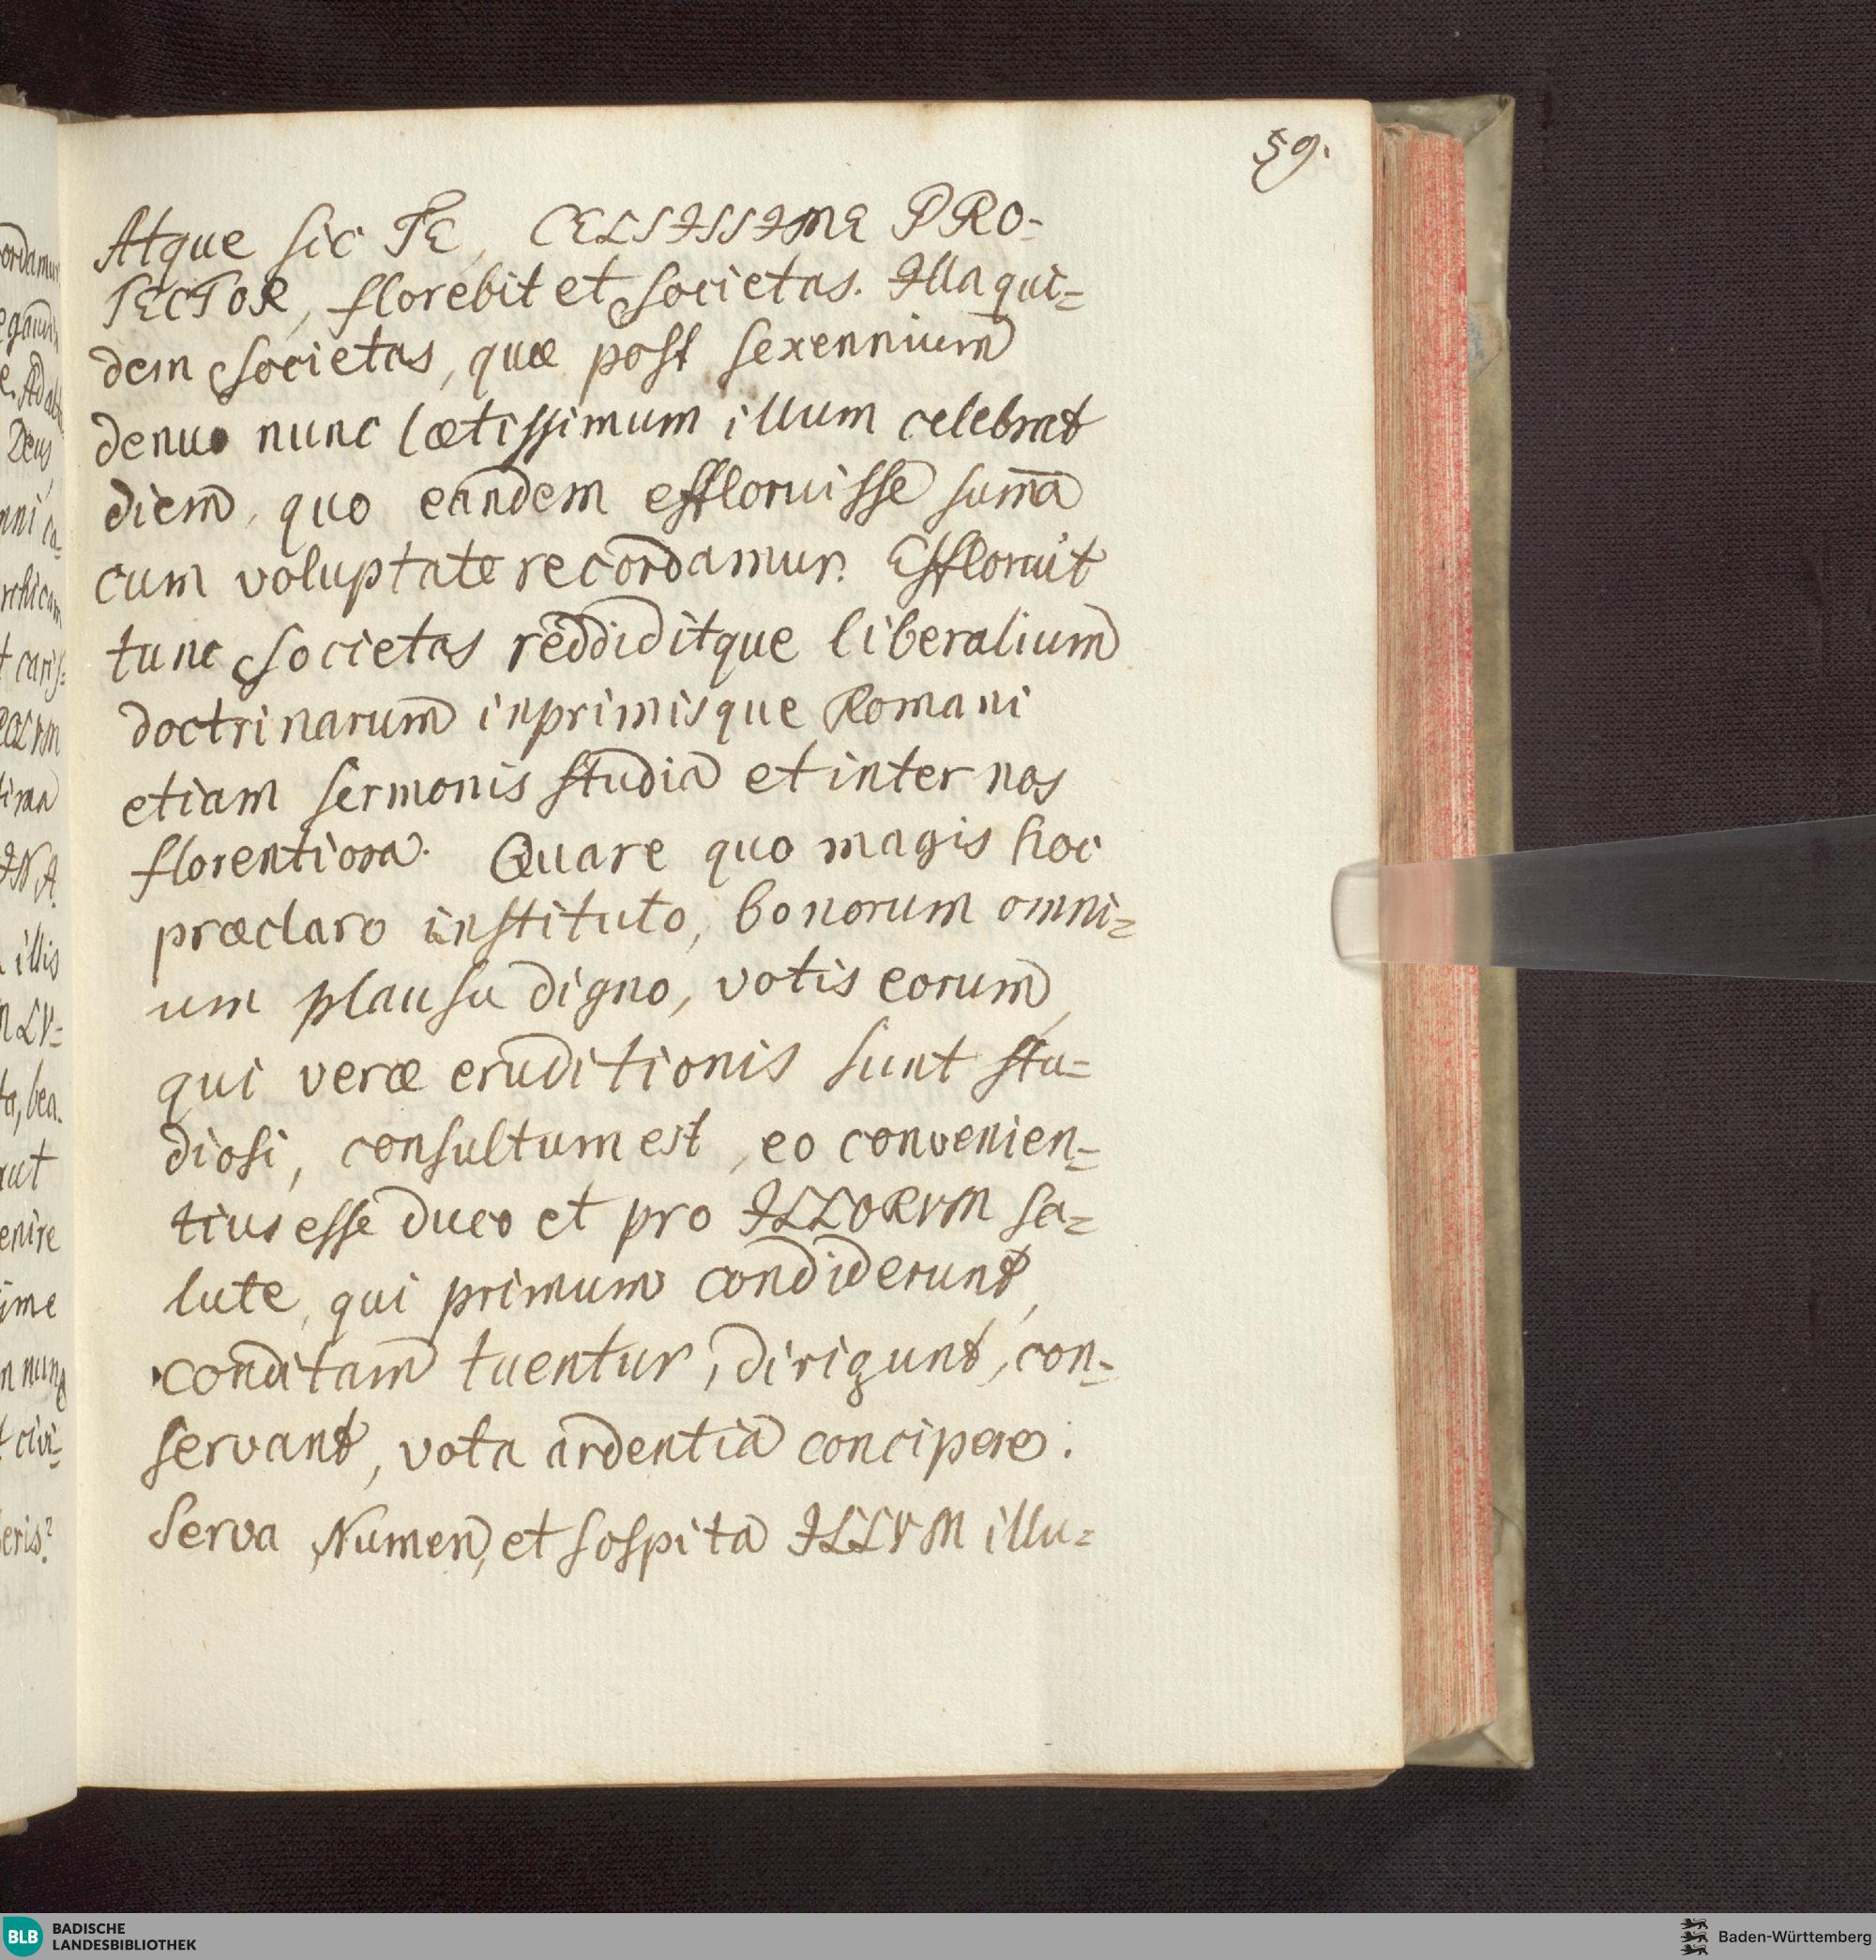 59.
Atque sic TE, CELSISSIME PRO-
TECTOR, florebit et Societas. Illa qui=
dem Societas, quæ post sexennium
denuo nunc lætissimum illum celebrat
diem, quo eandem effloruisse sum̄a
cum voluptate recordamur. Effloruit
tunc Societas reddiditque liberalium
doctrinarum inprimisque Romani
etiam sermonis studia et inter nos
florentiora. Quare quo magis hoc
præclaro instituto, bonorum omni=
um plausu digno, votis eorum,
qui veræ eruditionis sunt stu=
diosi, consultum est, eo convenien=
tius esse duco et pro ILLORVM sa=
lute, qui primum condiderunt,
conditam tuentur, dirigunt, con=
servant, vota ardentia concipere.
Serva Numen, et sospita ILLVM illu=
ordamur
Deus
illis
enire
eris?
BLB BADISCHE
LANDESBIBLIOTHEK
Baden-Württemberg